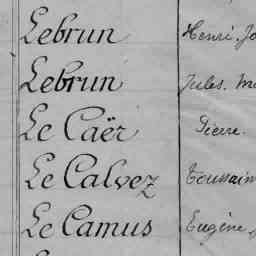 Lebrun Henri. Jo
Lebrun Jules. Ma
Le Caër Pierre.
Le Calvez Toussain
Le Camus Eugène,